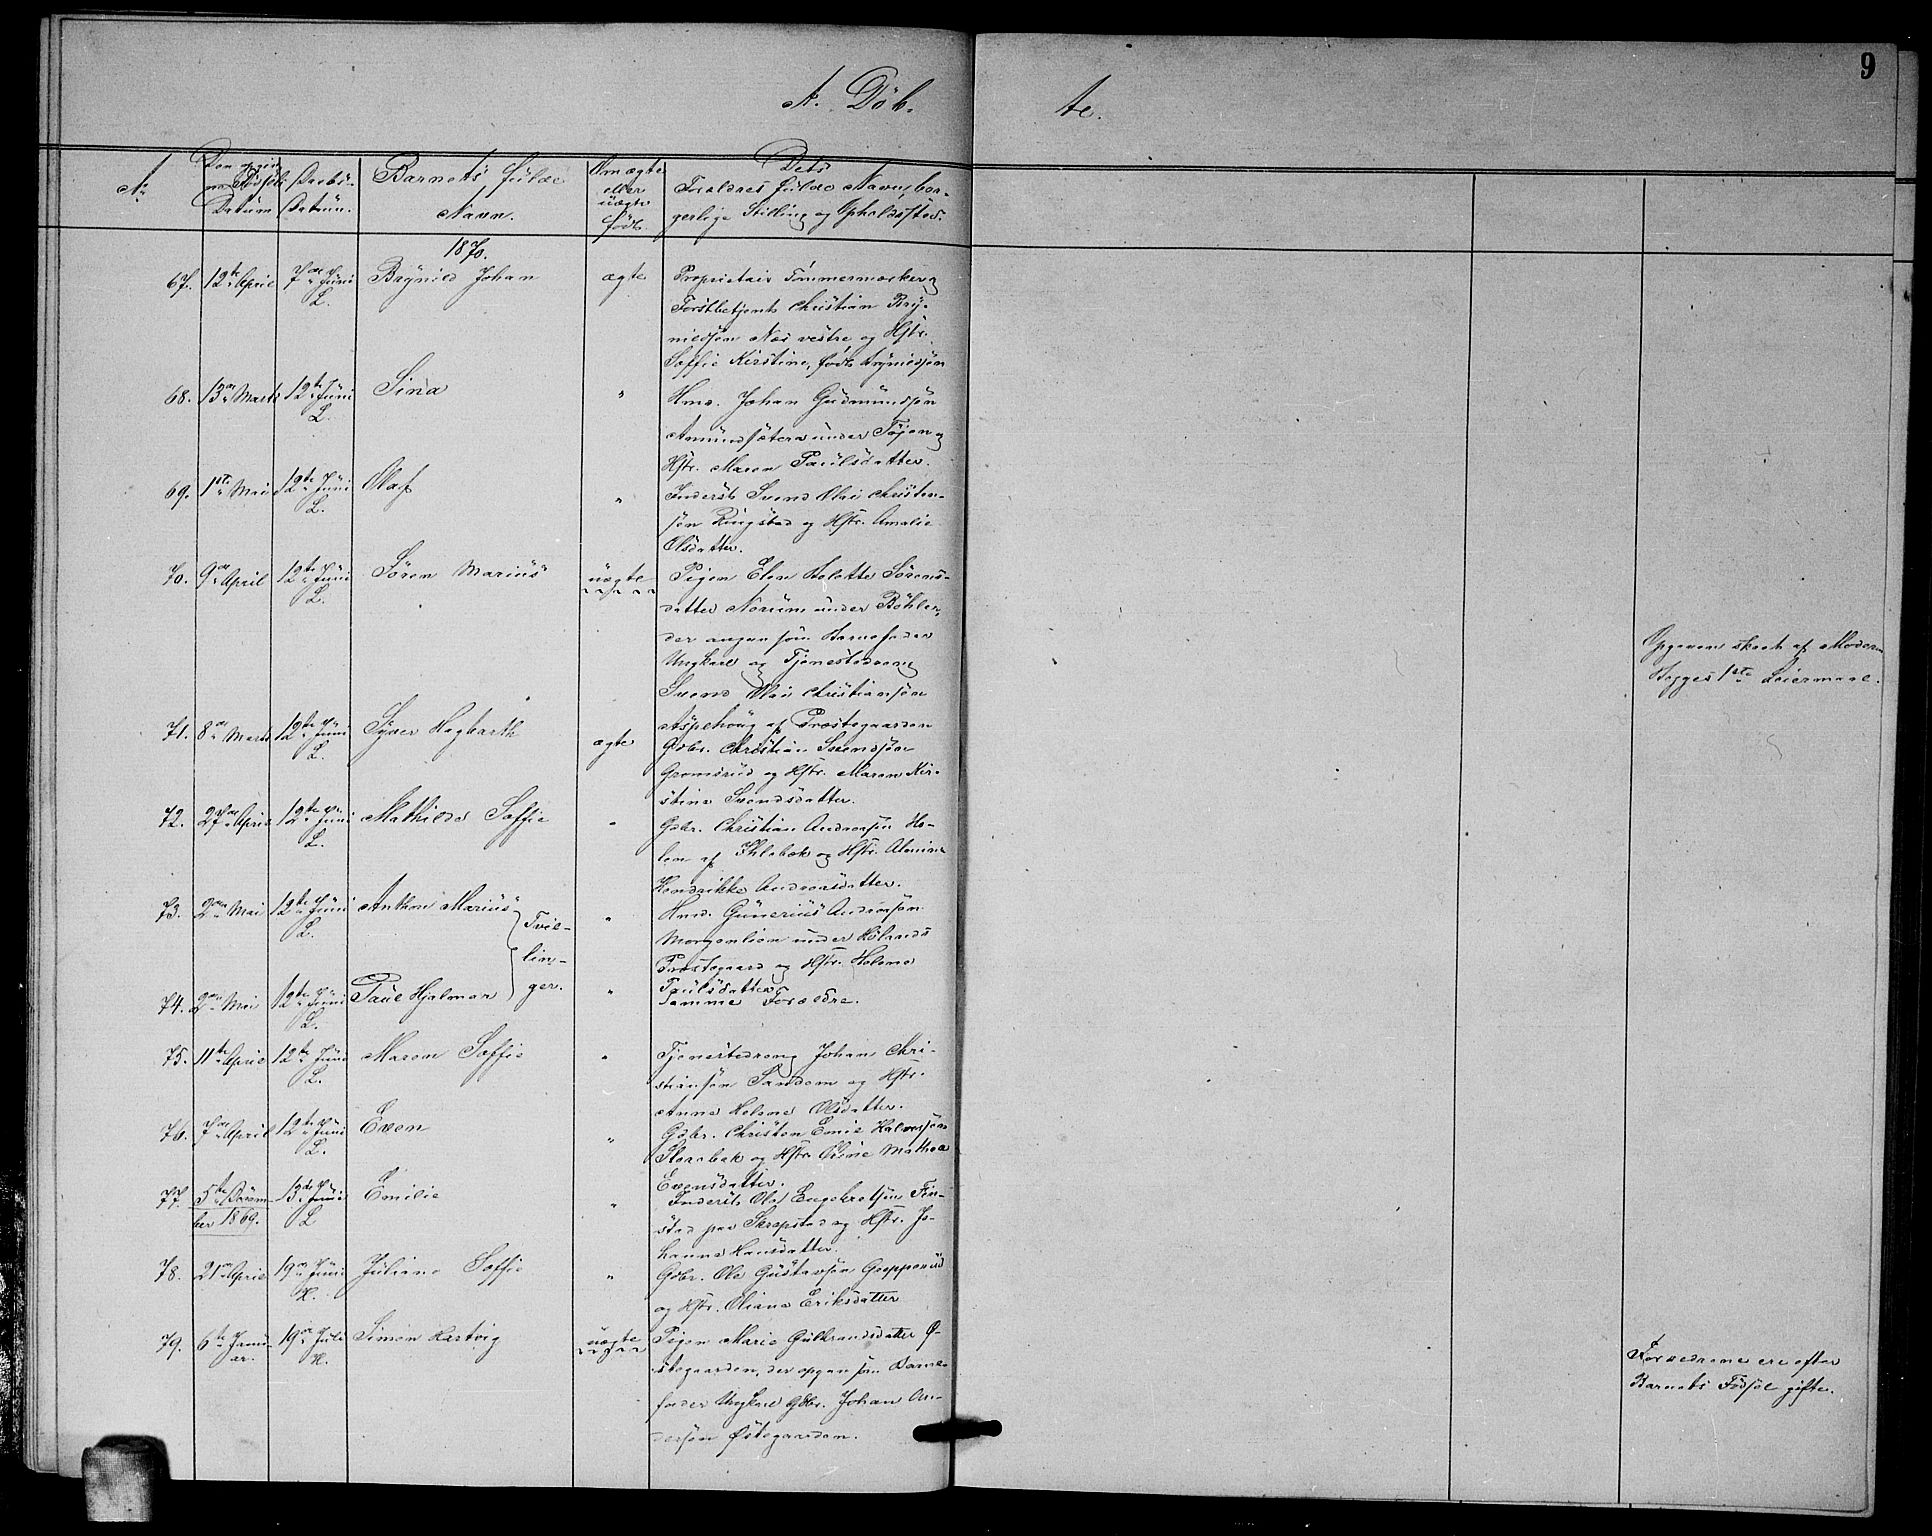 9
A. Døb-
te.
No
Den opgivne Fødsels Datum
Daabs-Datum.
Barnets fulde Navn.
Om ægte eller uægte født
Dets Forældres fulde Navn, bor-
gerlige Stilling og Opholdssted.
1870.
67. 12te April 7de Juni L. Brynild Johan ægte Proprietair Tømmermærker og
Forstbetjent Christian Bry-
nildsøn Næs vestre og Hstr.
Soffie Kirstine, født Brynildsøn
68. 13de Marts 12te Juni L. Sina " Hmd. Johan Gudmundsøn
Amundsætera under Tøjen og
Hstr. Maren Paulsdatter.
69. 1ste Mai 12te Juni L. Olaf " Inderst Svend Olai Christen-
søn Ringstad og Hstr. Amalie
Olsdatter.
70. 9de April 12te Juni L. Søren Marius uægte Pigen Elen Lolotte Sørens-
datter Norum under Bøhler,
der angav som Barnefader
Ungkarl og Tjenestedreng
Svend Olai Christiansøn
Aspehoug af Præstegaarden
Opgaven skeet af Moderen
Begges 1ste Leiermaal.
71. 8de Marts 12te Juni L. Syver Hagbarth ægte Gdbr. Christian Svendsøn
Gromsrud og Hstr. Maren Kir-
stine Svendsdatter.
72. 27de April 12te Juni L. Mathilde Soffie " Gdbr. Christian Andreasøn Ho-
len af Ihlebæk og Hstr.
Hendrikke Andreasdatter.
73. 2den Mai 12te Juni L. Anthon Marius " Hmd. Gunerius Andreasøn
Morgenlien under Hølands
Præstegaard og Hstr. Helene
Paulsdatter
Tvil-
lin-
ger.
74. 2den Mai 12te Juni L. Paul Hjalmar " Samme Forældre.
75. 11te April 12te Juni L. Maren Soffie " Tjenestedreng Johan Chri-
stiansøn Sandem og Hstr.
Anne Helene Olsdatter.
76. 7de April 12te Juni L. Even " Gdbr. Christen Emil Halvorsøn
Storebæk og Hstr. Oline Mathea
Evensdatter.
77. 5te Decem-
ber 1869. 13de Juni L Emilie " Inderst Ole Engebretsøn Fin-
stad paa Skrepstad og Hstr. Jo-
hanne Hansdatter.
78. 21de April 19de Juni H. Juliane Soffie " Gdbr. Ole Gustavsøn Greppenrud
og Hstr. Oliana Eriksdatter
79. 6te Janu-
ar. 19de Juli H. Simen Hartvig uægte Pigen Marie Gulbrandsdatter Ø-
stegaarden, der opgav som Barne-
fader Ungkarl Gdbr. Johan An-
dersøn Østegaarden.
Forældrene ere efter
Barnets Fødsel gifte.